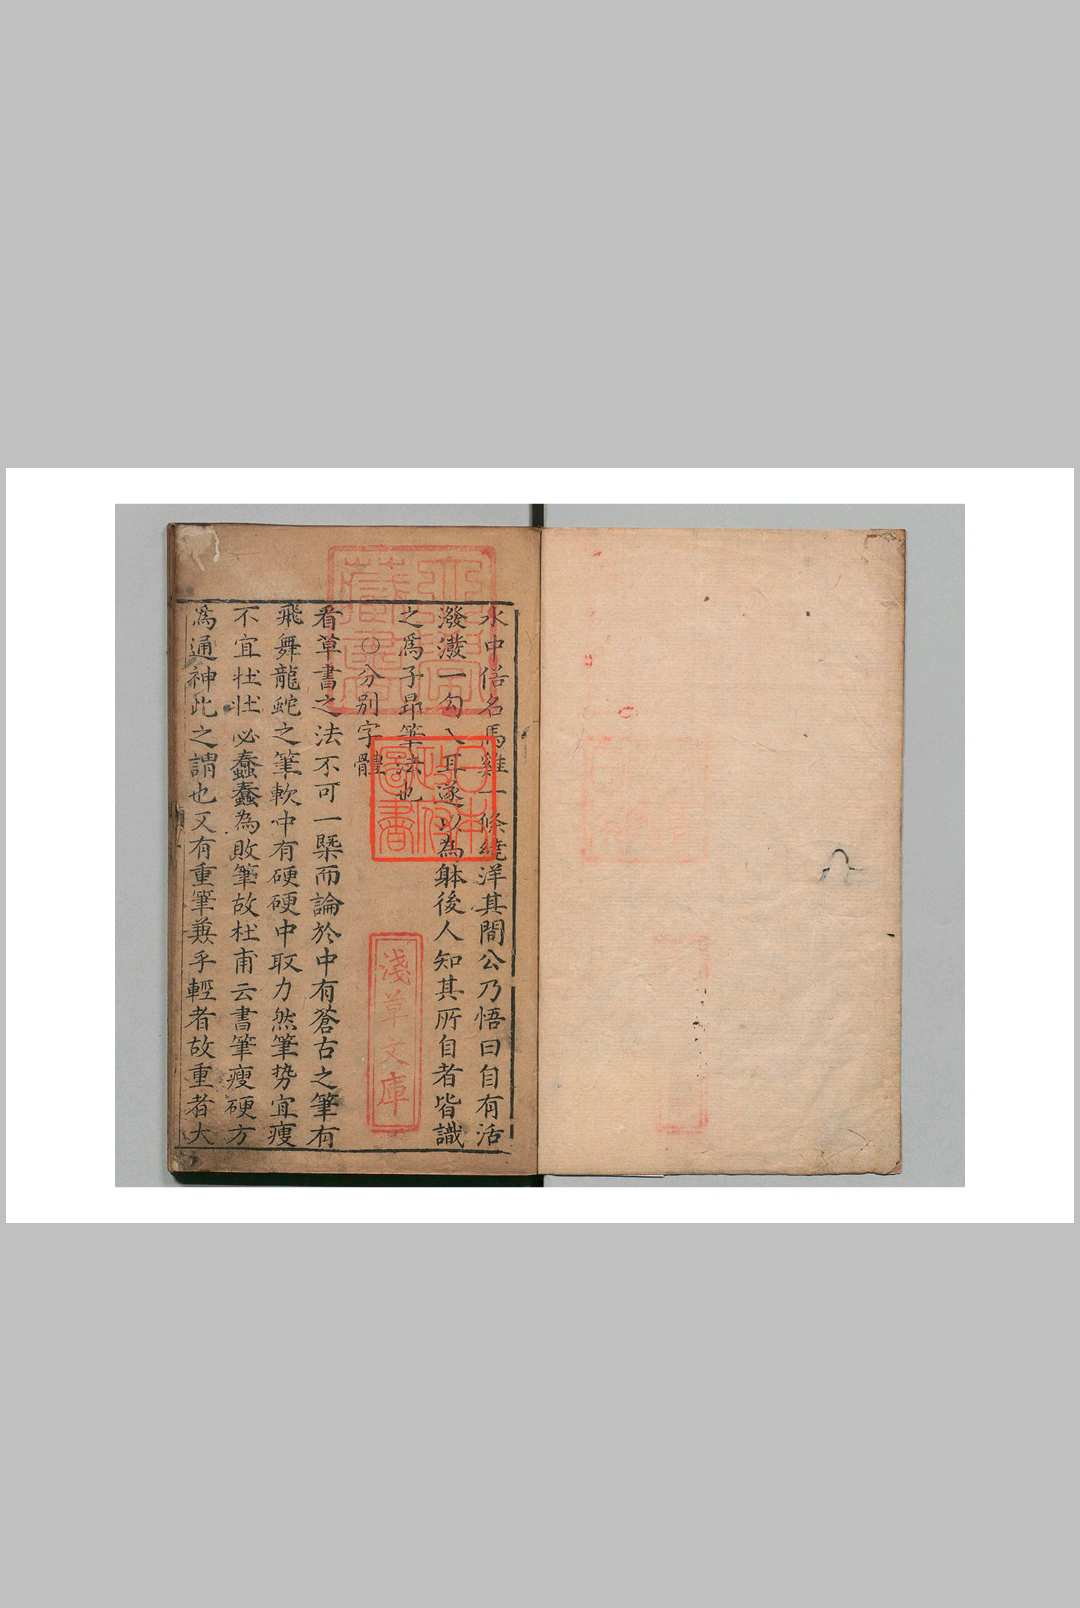 水中俗名馬雞一條繞洋其間公乃悟曰自有活
潑潑一勾入耳遂以為躰後人知其所自者皆識
之爲子昂筆法也
○分別字體
看草書之法不可一槩而論於中有蒼古之筆有
飛舞龍蛇之筆軟中有硬硬中取力然筆势宜瘦
不宜壮壮必蠢蠢為敗筆故杜甫云書筆瘦硬方
爲通神此之謂也又有重筆兼乎輕者故重者大
日本政府圖書
淺草文庫